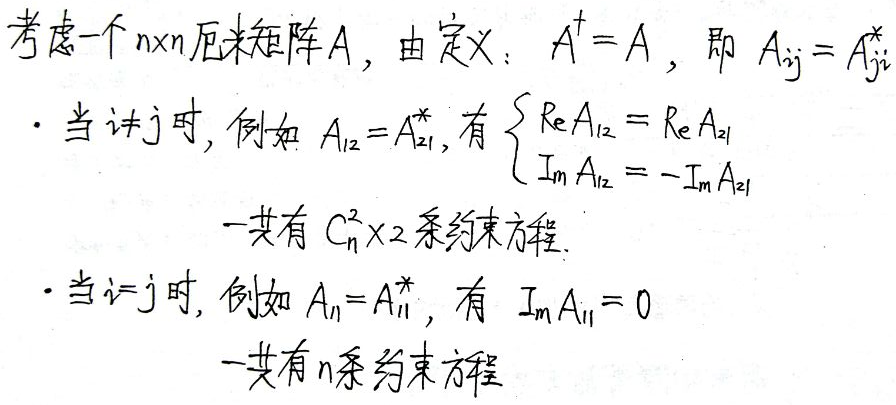 考虑一个 n×n 厄米矩阵 A，由定义：A† = A，即 Aᵢⱼ = A*ⱼᵢ
· 当 i≠j 时，例如 A₁₂ = A*₂₁，有 { Re A₁₂ = Re A₂₁
Im A₁₂ = -Im A₂₁
一共有 Cₙ² × 2 条约束方程.
· 当 i=j 时，例如 A₁₁ = A*₁₁，有 Im A₁₁ = 0
一共有 n 条约束方程